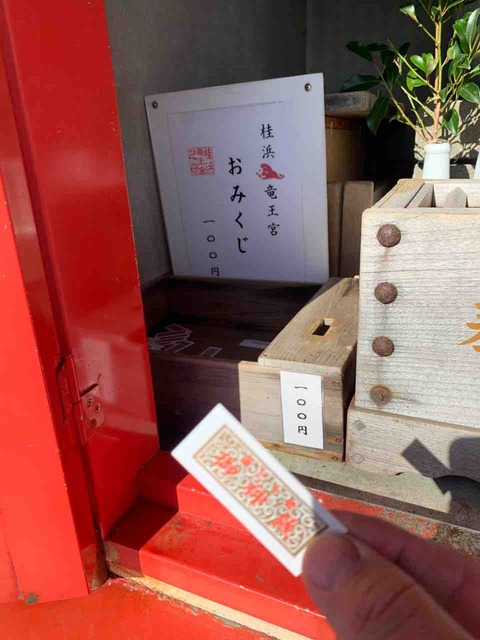 桂浜 竜王宮
おみくじ
一〇〇円
一〇〇円
御神籤